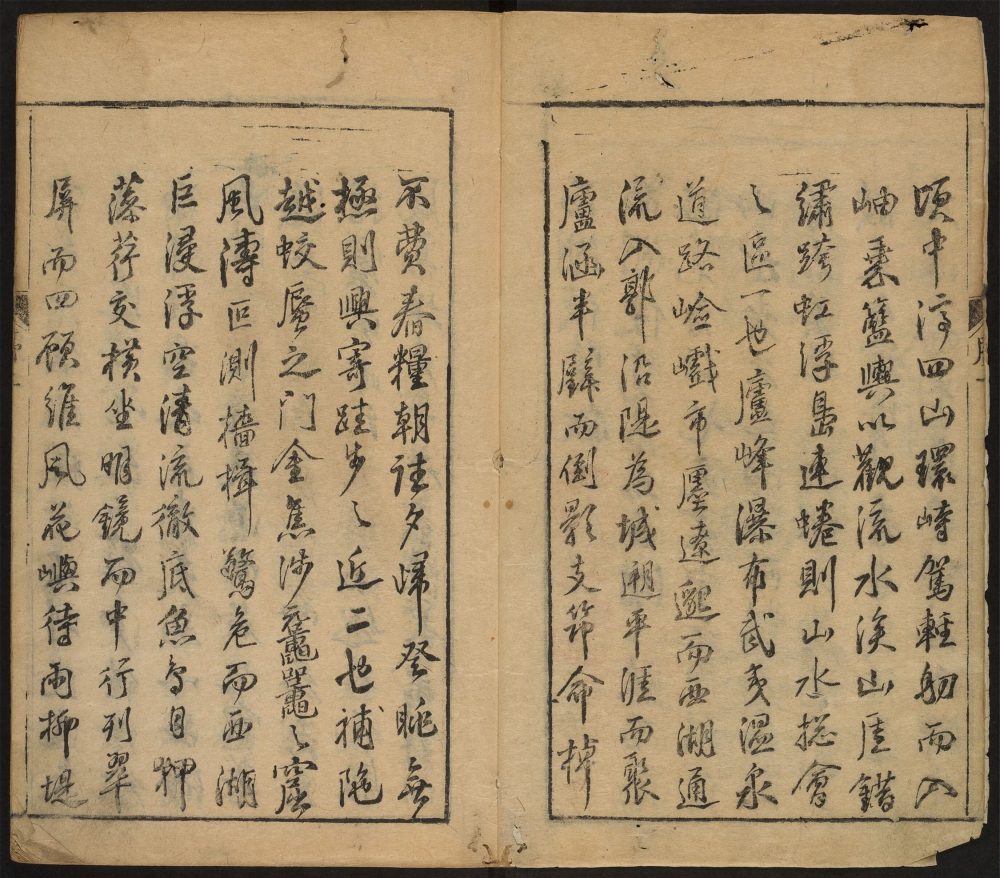 頃中渟四山環峙駕輕舠而入
岫乘籃輿以觀流水溪山厓錯
繡跨虹浮島連蜷則山水摠會
之區一也廬峰瀑布武夷溫泉
道路嶮巇市廛遼邈而西湖通
流入郭沿隄為城遡平涯而聚
廬涵半壁而倒影支笻命棹
不費舂糧朝往夕歸登眺無
極則興寄跬步之近二也補陁
越蛟蜃之門金焦涉黿鼉之窟
風濤叵測檣楫驚危而西湖
巨浸浮空清流徹底魚鳥目狎
藻荇交橫坐明鏡而中行列翠
屏而四顧維風花嶼待雨柳堤